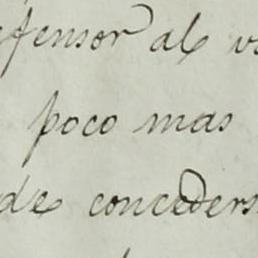 efensor al v
poco mas
de conceders